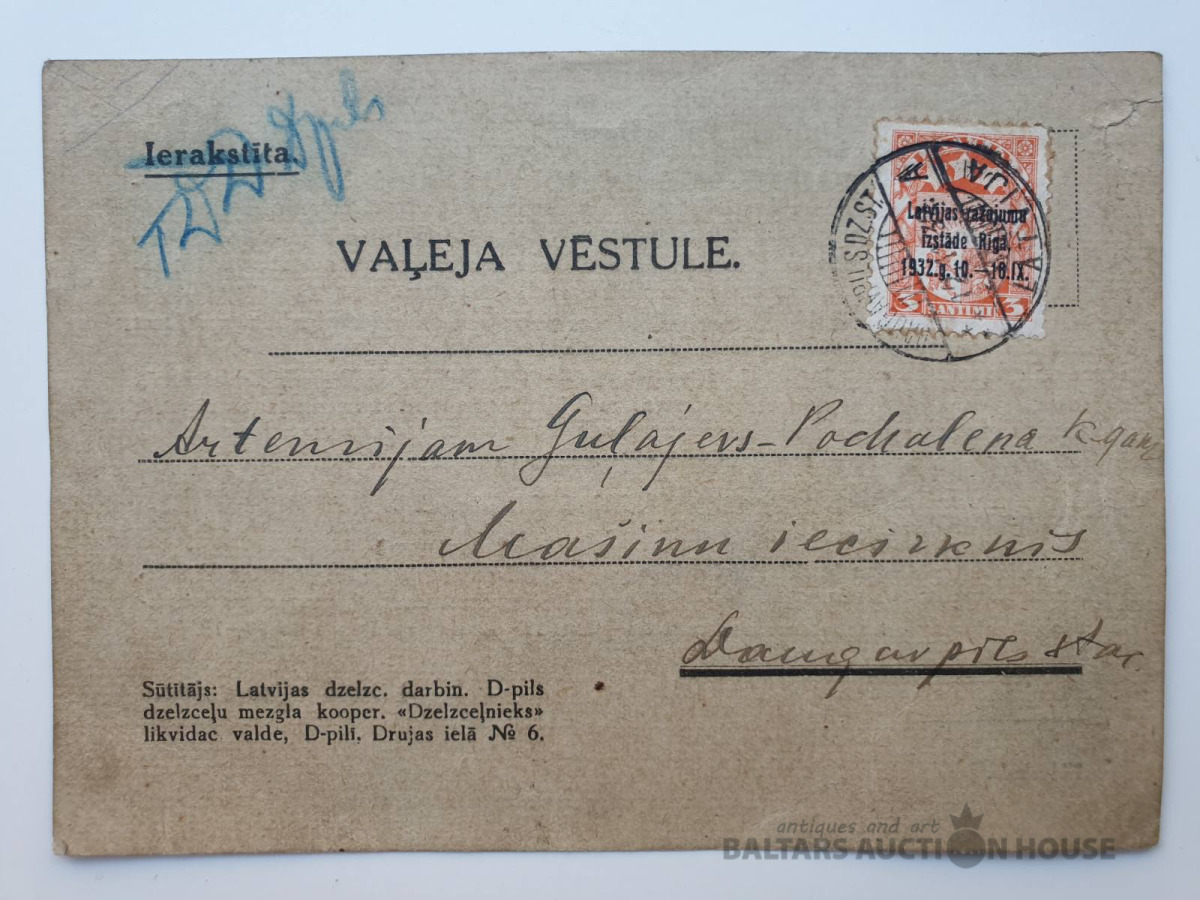 Ierakstīta.
VAĻEJA VĒSTULE.
Latvijas ražojumu
izstāde Rīgā.
1932.g. 10.—18.IX.
3 SANTIMI 3
LATVIJA
Artemijam Guļājevs-Pochalena
Mašinu iecirknis
Daugavpils sta.
Sūtītājs: Latvijas dzelzc. darbin. D-pils
dzelzceļu mezgla kooper. «Dzelzceļnieks»
likvidac valde, D-pilī, Drujas ielā № 6.
antiques and art
BALTARS AUCTION HOUSE